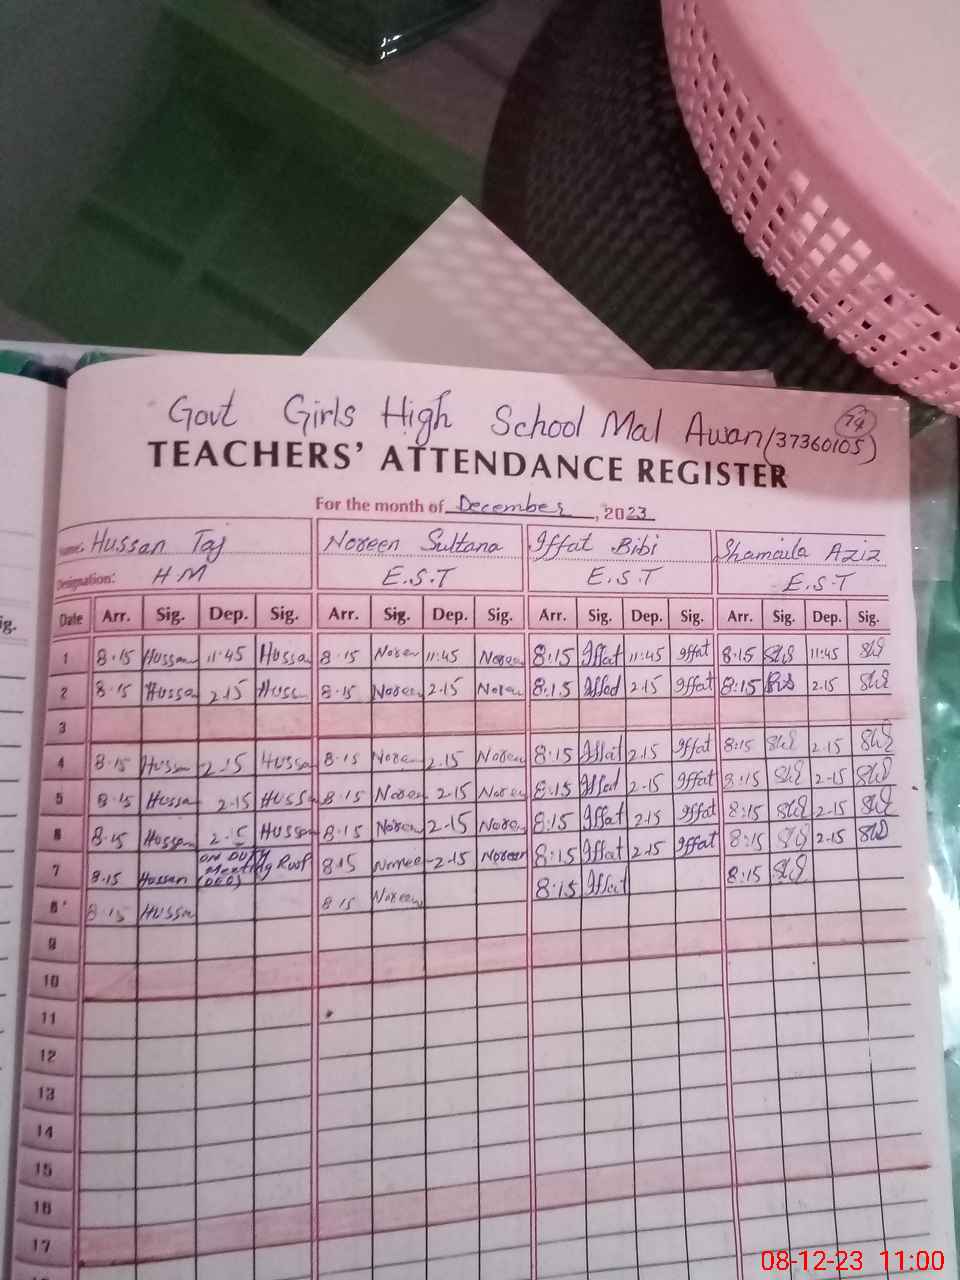 Govt Girls High School Mal Awan (37360105)
74
TEACHERS' ATTENDANCE REGISTER
For the month of December, 2023
Name: Hussan Taj Noreen Sultana Iffat Bibi Shamaila Aziz
Designation: H M E.S.T E.S.T E.S.T
ig. Date Arr. Sig. Dep. Sig. Arr. Sig. Dep. Sig. Arr. Sig. Dep. Sig. Arr. Sig. Dep. Sig.
1 8.15 Hussan 11:45 Hussan 8.15 Noreen 11:45 Noreen 8:15 Iffat 11:45 Iffat 8:15 11:45
2 8.15 Hussa 2.15 Huss 8.15 Noreen 2.15 Noreen 8:15 Iffat 2.15 Iffat 8:15 2.15
3
4 8.15 Hussan 2.15 Hussan 8.15 Noreen 2.15 Noreen 8:15 Iffat 2.15 Iffat 8:15 2.15
5 8.15 Hussan 2.15 Hussan 8.15 Noreen 2.15 Noreen 8:15 Iffat 2.15 Iffat 8:15 2-15
6 8.15 Hussan 2.15 Hussan 8.15 Noreen 2-15 Noreen 8:15 Iffat 2.15 Iffat 8:15 2-15
7 8.15 Hussan ON DUTY Meeting (DEO) 8.15 Noreen 2-15 Noreen 8:15 Iffat 2.15 Iffat 8:15 2.15
8 8.15 Hussa 8.15 Noreen 8:15 Iffat 8:15
9
10
11
12
13
14
15
16
17
08-12-23 11:00